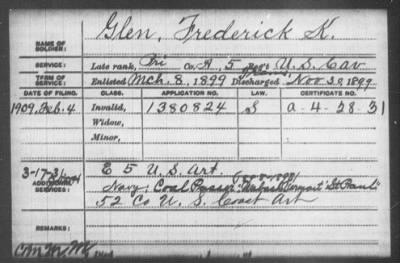 Glen, Frederick K.
NAME OF SOLDIER:
SERVICE: Late rank, Pri Co. A, 5 Reg't U.S. Cav
TERM OF SERVICE: Enlisted Mch. 8, 1899 Discharged Nov 30, 1899
DATE OF FILING. CLASS. APPLICATION NO. LAW. CERTIFICATE NO.
1909, Feb. 4 Invalid, 1380824 S a-4-28-31
Widow,
Minor,
3-17-31 E 5 U.S. Art.
ADDITIONAL SERVICES: Navy: Coal Passer "Wabash" "Vermont" "St Paul"
52 Co U.S. Coast Art
REMARKS: